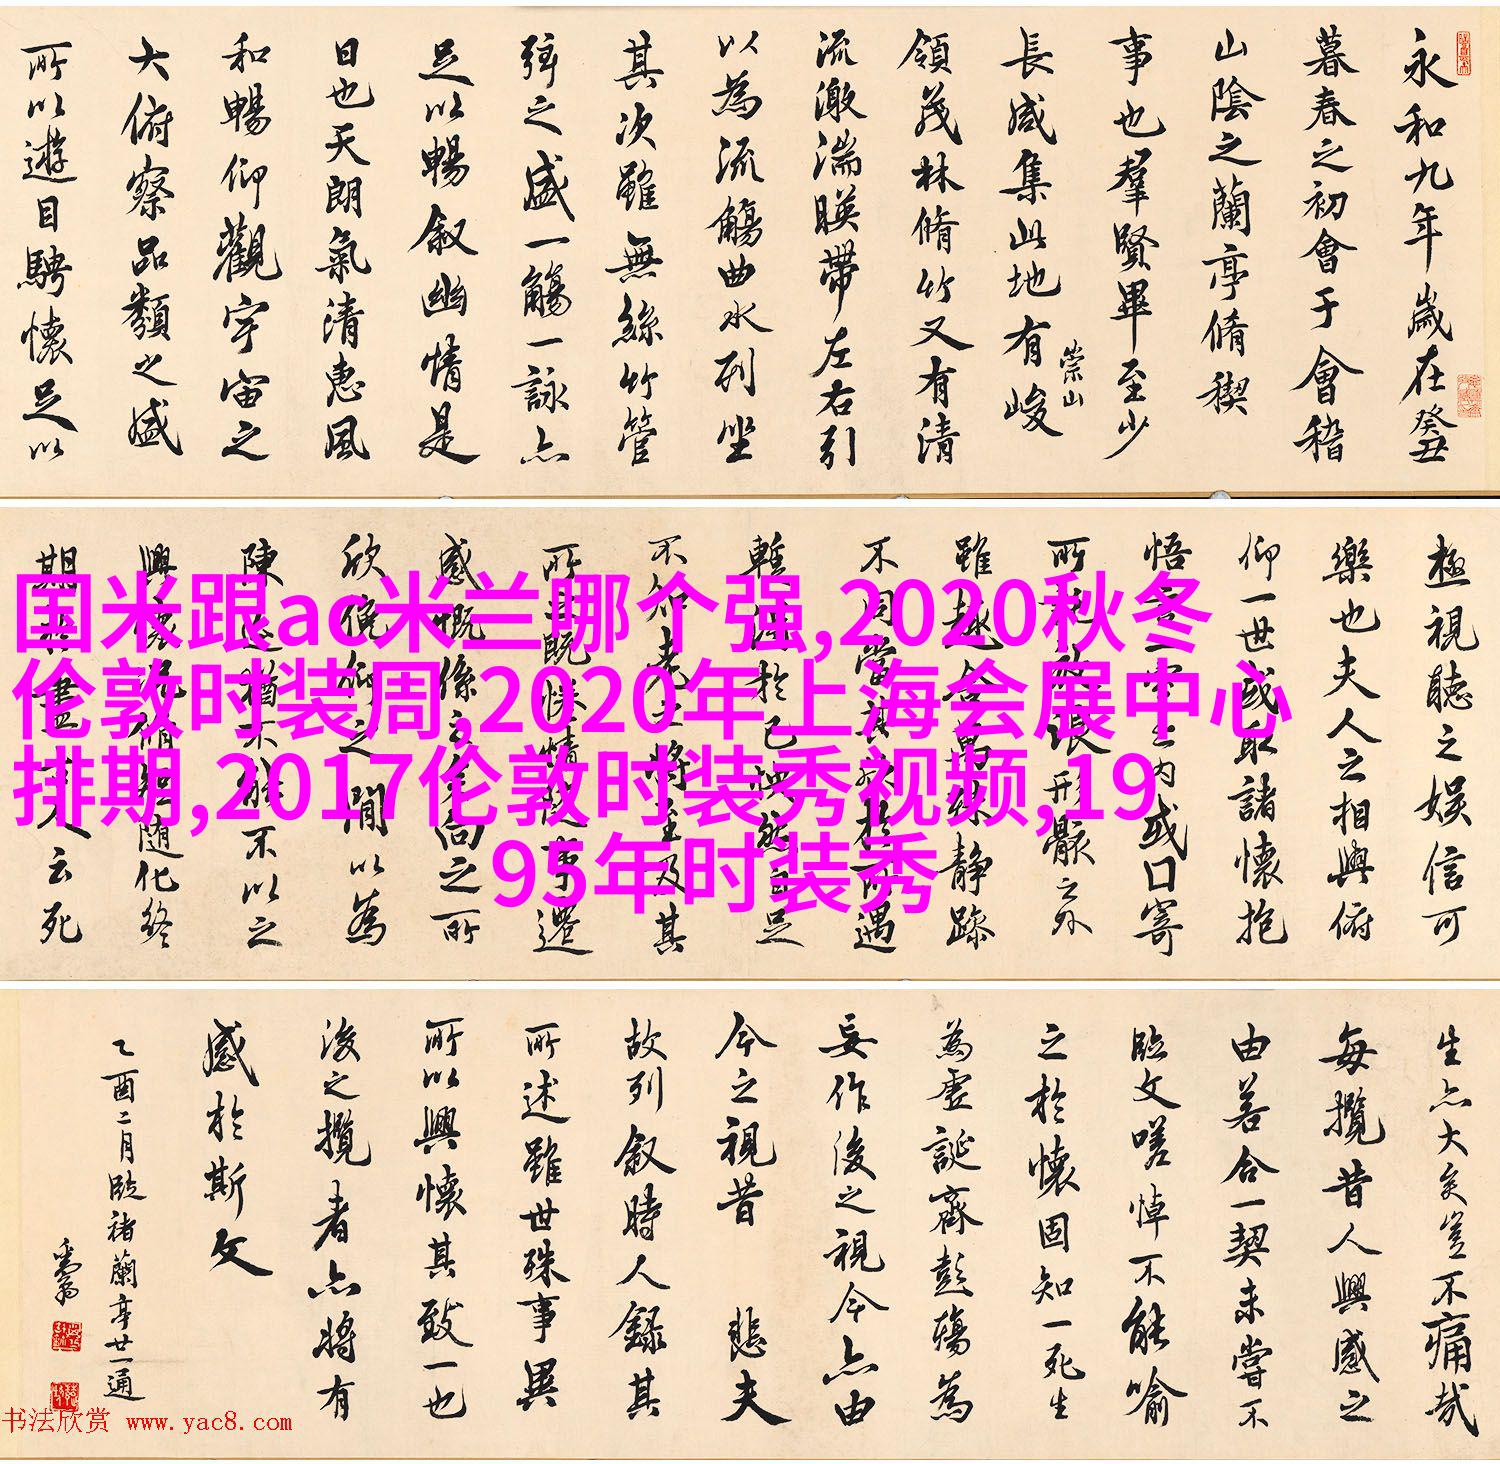 永和九年歲在癸丑
暮春之初會于會稽
山陰之蘭亭脩稧
事也羣賢畢至少
長咸集此地有峻
崇山
領茂林脩竹又有清
流激湍暎帶左右引
以為流觴曲水列坐
其次雖無絲竹管
弦之盛一觴一詠亦
足以暢叙幽情是
日也天朗氣清惠風
和暢仰觀宇宙之
大俯察品類之盛
所以遊目騁懷足以
極視聽之娛信可
樂也夫人之相與俯
仰一世或取諸懷抱
悟言一室之內或口寄
所託放浪形骸之外
雖趣舍萬殊靜躁
不同當其欣於所遇
暫得於己怏然自足
不知老之將至及其
所之既惓情隨事遷
感慨係之矣向之所
欣俛仰之間以為
陳迹猶不能不以之
興懷況脩短隨化終
期於盡古人云死
生亦大矣豈不痛哉
每攬昔人興感之
由若合一契未嘗不
臨文嗟悼不能喻
之於懷固知一死生
為虛誕齊彭殤為
妄作後之視今亦由
今之視昔 悲夫
故列叙時人錄其
所述雖世殊事異
所以興懷其致一也
後之攬者亦將有
感於斯文
乙酉二月臨褚蘭亭廿一通
国米跟ac米兰哪个强,2020秋冬
伦敦时装周,2020年上海会展中心
排期,2017伦敦时装秀视频,19
95年时装秀
书法欣赏 www.yac8.com